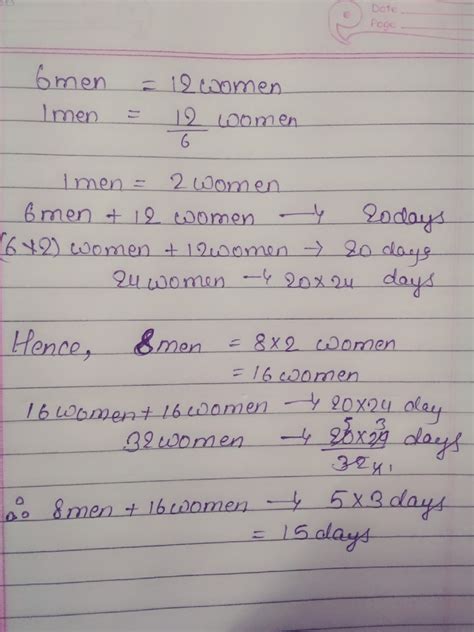 Date
Page
6men = 12women
1men = 12/6 women
1men = 2women
6men + 12 women → 20days
(6×2) women + 12women → 20 days
24women → 20×24 days
Hence, 8men = 8×2 women
= 16women
16women + 16women → 20×24 day
32women → 20×24/32 days
5 3
4
∴ 8men + 16women → 5×3days
= 15days